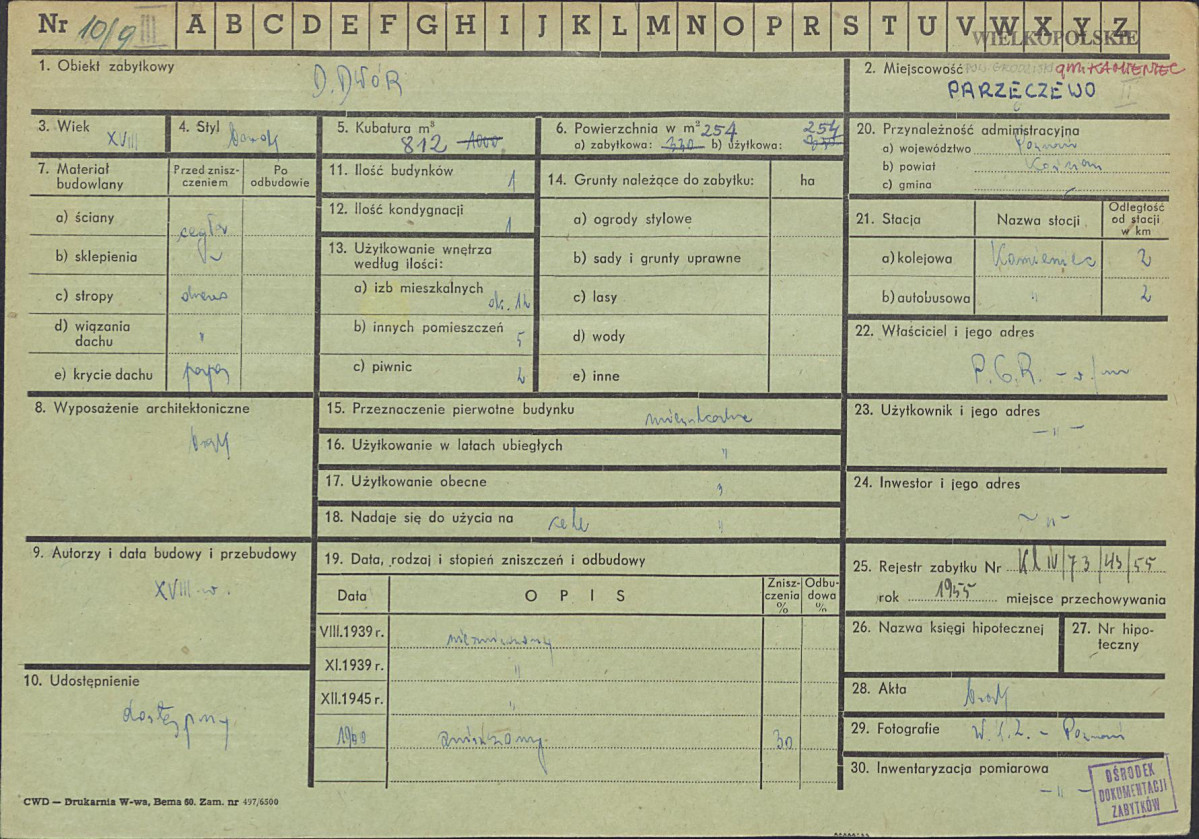 Nr 10/9 III A B C D E F G H I J K L M N O P R S T U V W X Y Z
WIELKOPOLSKIE
1. Obiekt zabytkowy
D. DWÓR
2. Miejscowość gm. KAMIENIEC
PARZĘCZEWO II
3. Wiek XVIII
4. Styl barok
5. Kubatura m³
812 1000
6. Powierzchnia w m² 254 254
a) zabytkowa: 330 b) użytkowa: 330
7. Materiał budowlany
Przed znisz-
czeniem
Po
odbudowie
a) ściany cegła
b) sklepienia
c) stropy drewno
d) wiązania
dachu "
e) krycie dachu papa
8. Wyposażenie architektoniczne
brak
9. Autorzy i data budowy i przebudowy
XVIII w.
10. Udostępnienie
dostępny
11. Ilość budynków 1
12. Ilość kondygnacji 1
13. Użytkowanie wnętrza
według ilości:
a) izb mieszkalnych ok. 12
b) innych pomieszczeń 5
c) piwnic 2
14. Grunty należące do zabytku: ha
a) ogrody stylowe
b) sady i grunty uprawne
c) lasy
d) wody
e) inne
15. Przeznaczenie pierwotne budynku mieszkalne
16. Użytkowanie w latach ubiegłych "
17. Użytkowanie obecne "
18. Nadaje się do użycia na cele "
19. Data, rodzaj i stopień zniszczeń i odbudowy
Data OPIS Znisz-
czenia
%
Odbu-
dowa
%
VIII.1939 r. niezniszczony
XI.1939 r. "
XII.1945 r. "
zniszczony 30
20. Przynależność administracyjna
a) województwo Poznań
b) powiat Kościan
c) gmina
21. Stacja Nazwa stacji Odległość
od stacji
w km
a) kolejowa Kamieniec 2
b) autobusowa " 2
22. Właściciel i jego adres
P.G.R. - w/m
23. Użytkownik i jego adres
- " -
24. Inwestor i jego adres
- " -
25. Rejestr zabytku Nr Kl IV/73/43/55
rok 1955 miejsce przechowywania
26. Nazwa księgi hipotecznej
27. Nr hipo-
teczny
28. Akta brak
29. Fotografie - Poznań
30. Inwentaryzacja pomiarowa
- " -
OŚRODEK
DOKUMENTACJI
ZABYTKÓW
CWD — Drukarnia W-wa, Bema 60. Zam. nr 497/6500